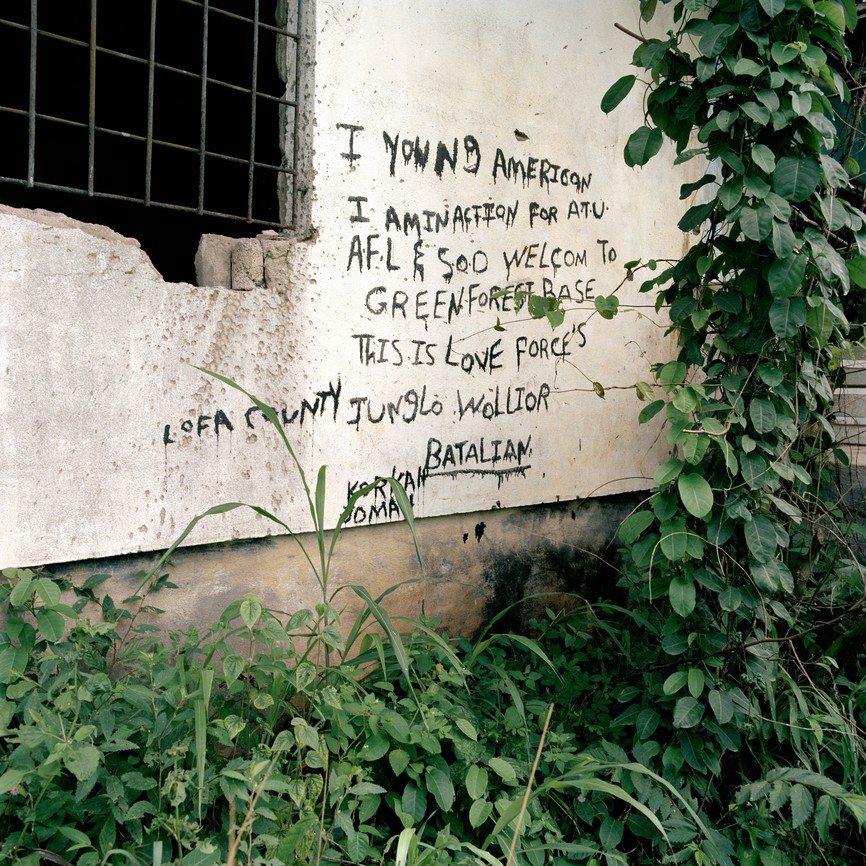 I YOUNG AMERICAN
I AM IN ACTION FOR ATU.
AFL & SOD WELCOM TO
GREEN FOREST BASE
THIS IS LOVE FORCE'S
LOFA COUNTY JUNGLO WOLLIOR
BATALIAN